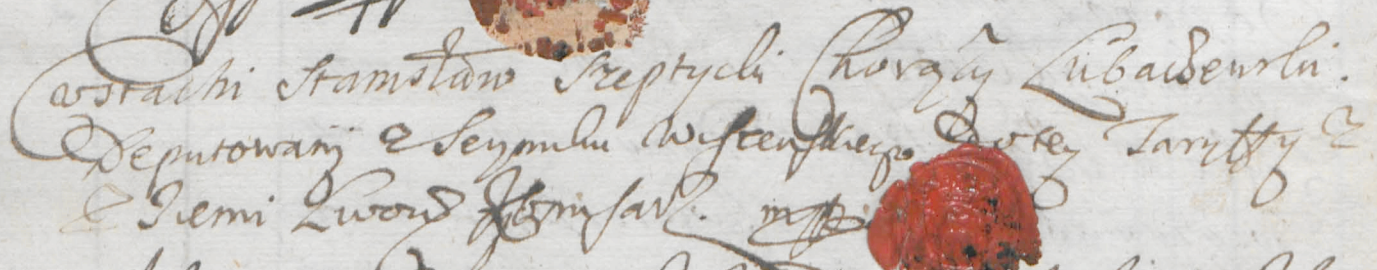 Eustachi Stanisław Szeptycki Chorąży Lubaczewski.
Deputowany z Seymiku Wiszeńskiego do tey Taryffy z
z Ziemi Lwows Komisarz. mpp